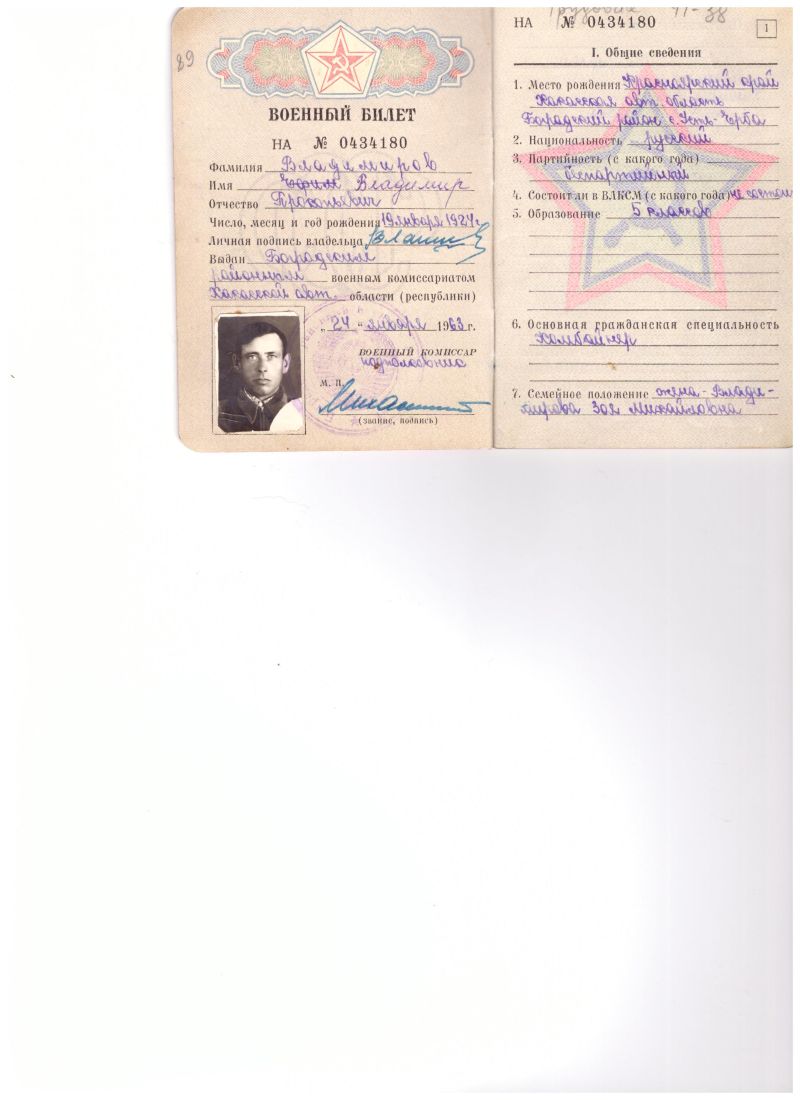 89
ВОЕННЫЙ БИЛЕТ
НА № 0434180
Фамилия Владимиров
Имя Ефим Владимир
Отчество Прокопьевич
Число, месяц и год рождения 19 января 1924 г.
Личная подпись владельца
Выдан Боградским
районным военным комиссариатом
Хакасской авт. области (республики)
„24" января 1963 г.
ВОЕННЫЙ КОМИССАР
подполковник
М. П.
(звание, подпись)
Грузовик 41-38
НА № 0434180
1
I. Общие сведения
1. Место рождения Красноярский край
Хакасская авт. область
Боградский район с. Усть-Ерба
2. Национальность русский
3. Партийность (с какого года)
беспартийный
4. Состоит ли в ВЛКСМ (с какого года) не состоит
5. Образование 5 классов
6. Основная гражданская специальность
Комбайнер
7. Семейное положение жена - Влади-
мирова Зоя Михайловна